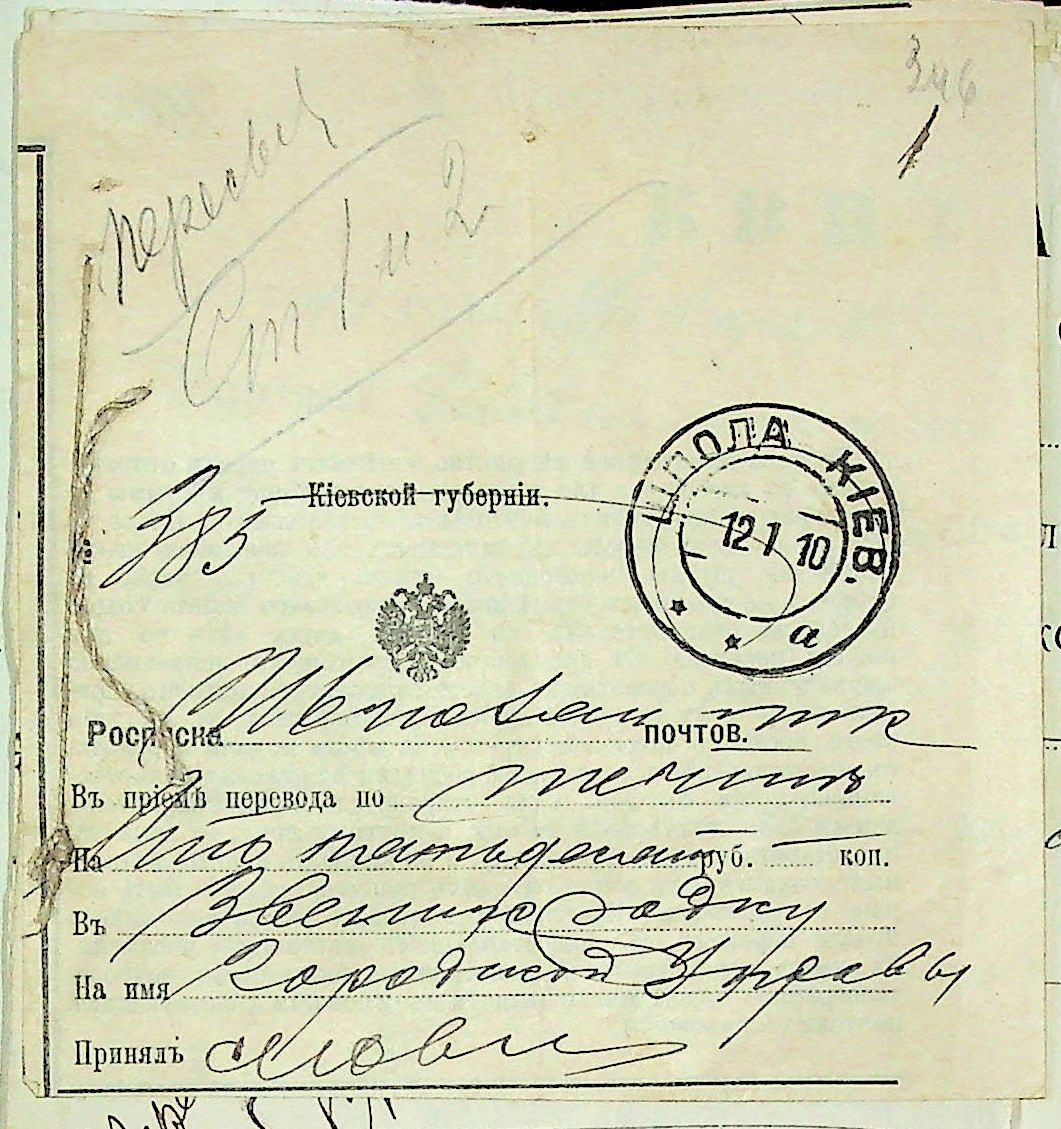 346
Ст 1 и 2
ШПОЛА КІЕВ.
12 1 10
а
385
Кіевской губерніи.
Росписка почтов.
Въ пріемѣ перевода по
На Сто пятьдесят руб. — коп.
Въ Звенигородку
На имя Городской Управы
Принялъ